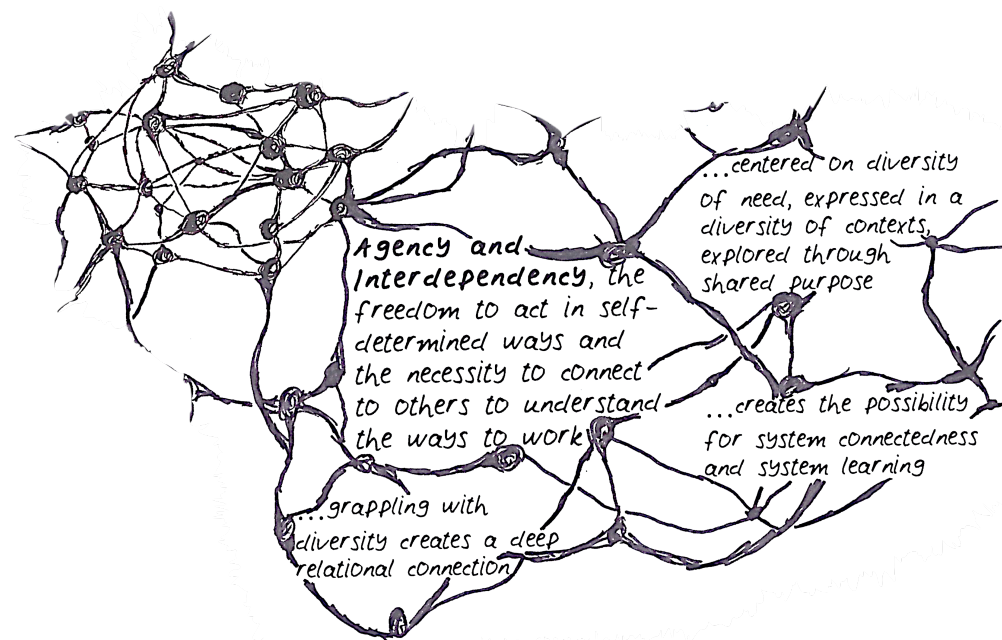 Agency and
Interdependency, the
freedom to act in self-
determined ways and
the necessity to connect
to others to understand
the ways to work
...centered on diversity
of need, expressed in a
diversity of contexts,
explored through
shared purpose
...creates the possibility
for system connectedness
and system learning
...grappling with
diversity creates a deep
relational connection